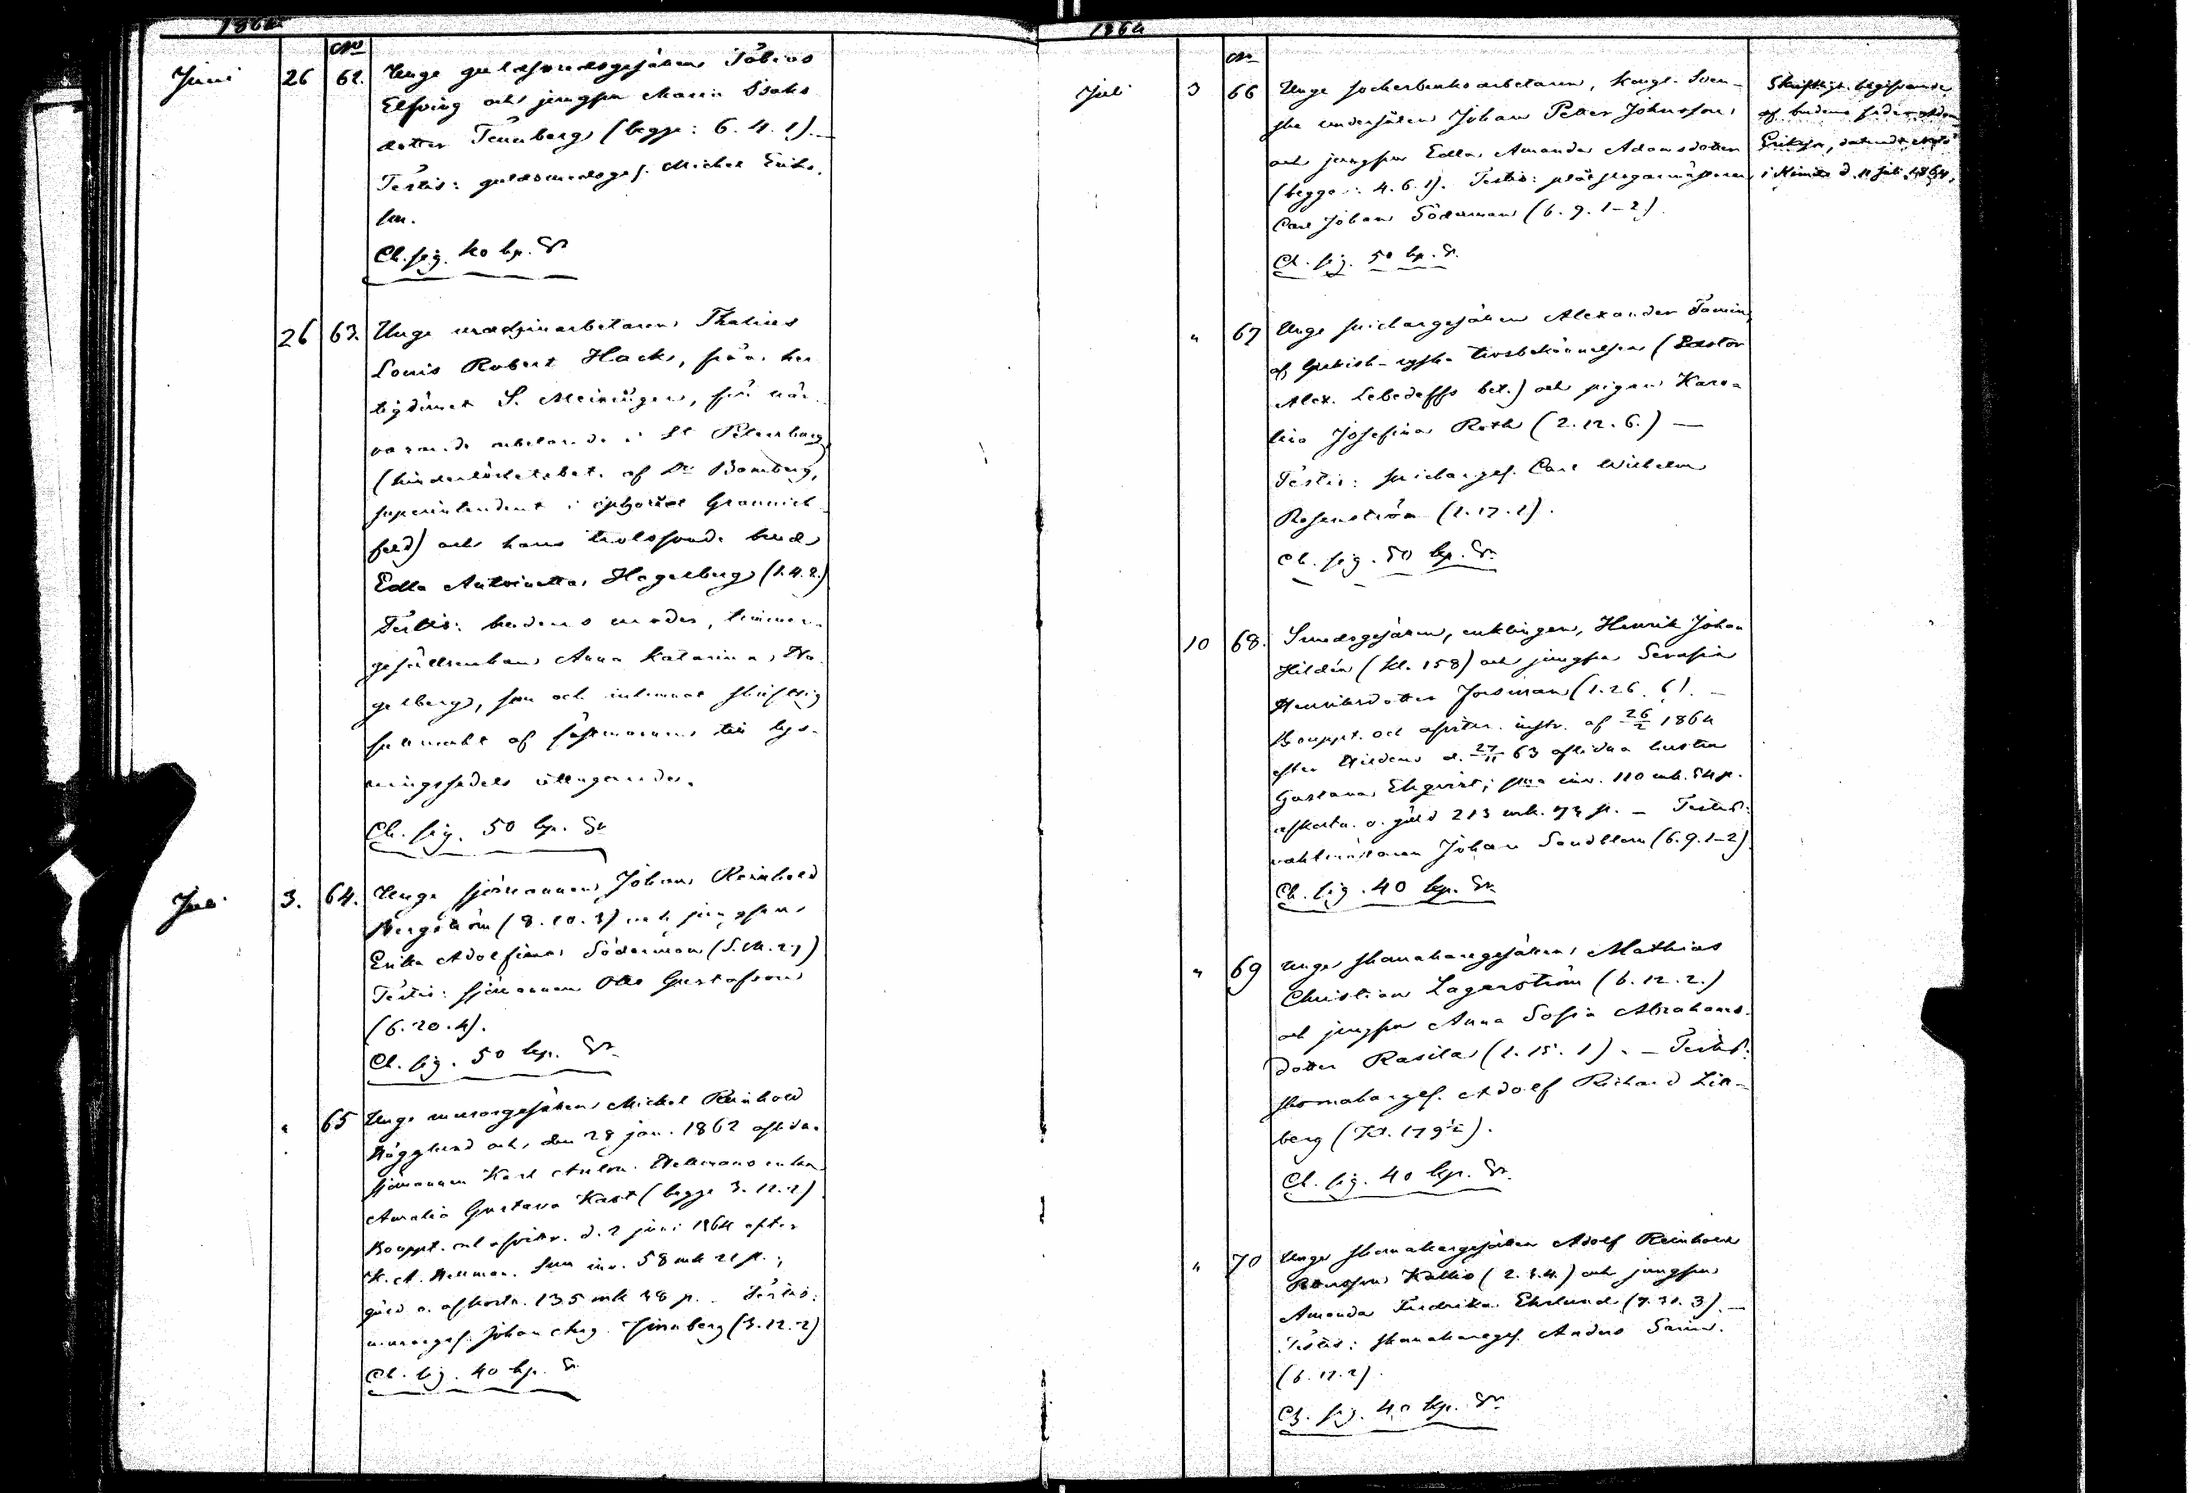 1864
No
Juni 26 62. Unge guldsmedsgesällen Tobias
Elfving och jungfru Maria Isaks
dotter Tennberg (begge: 6. 4. 1). —
Testis: guldsmedsges. Michel Eriks
son.
Ch. sig. 40 kop. Sr
26 63. Unge maskinarbetaren Thalius
Louis Robert Hack, från her
tigdömet S. Meiningen, för när
varande arbetande i St Petersburg
(hinderlöshetsbet. af Dr Bamberg,
superintendent i ephoriat Grannich
feld) och hans trolofvade brud
Edla Antoinetta Hagelberg (1. 4. 2.)
Testis: brudens moder, timmer
gesällsenkan Anna Katarina Ha
gelberg, som och inlemnat skriftlig
fullmakt af fästmannen till lys-
ningssedels uttagande.
Ch. sig. 50 kop. Sr
Juli 3. 64. Unge sjömannen Johan Reinhold
Bergström (8. 10. 3) och jungfrun
Erika Adolfina Söderman
Testis: sjömannen Otto Gustafsson
(6. 20. 4).
Ch. sig. 50 kop. Sr
" 65 Unge muraregesällen Michel Reinhold
Hägglund och den 28 jan. 1862 aflidne
sjömannen Karl Anton Hellmans enka
Amalia Gustava Kast (begge 3. 12. 2)
Bouppt. och afvittr. d. 2 juni 1864 efter
K. A. Hellman. Sum inv. 58 mk 21 p.;
gäld o. afkortn. 135 mk 38 p. — Testis:
mureges. Johan Aug. Finnberg (3. 12. 2)
Ch. sig. 40 kop. Sr
1864
No
Juli 3 66 Unge sockerbruksarbetaren, Kongl. Sven-
ska undersåten Johan Petter Johnsson,
och jungfru Edla Amanda Adamsdotter
(begge: 4. 6. 1). Testis: plåtslagaremästaren
Carl Johan Söderman (6. 9. 1-2).
Ch. sig. 50 kop. Sr
Skriftligt begifvande
af brudens fader Adam
Eriksson, dateradt
i Kimito d. 11 Juli 1864.
" 67 Unge snickargesällen Alexander Famin,
af Grekisk-ryska trosbekännelsen (Pastor
Alex. Lebedeffs bet.) och pigan Karo
lina Josefina Roth (2. 12. 6.) —
Testis: snickargess. Carl Wilhelm
Rosenström (1. 17. 1).
Ch. sig. 50 kop. Sr
10 68. Smedsgesällen, enklingen, Henrik Johan
Hildén (kl. 158) och jungfru Serafia
Henriksdotter Forsman (1. 26. 6). —
Bouppt. och afvittr. instr. af 26/2 1864
efter Hildens d. 27/11 63 aflidna hustru
Gustava Ekqvist; sma inv. 110 mk. 84 p.
afkortn. o. gäld 213 mk. 73 p. — Testis:
vaktmästaren Johan Sandblom (6. 9. 1-2)
Ch. sig. 40 kop. Sr
" 69 Unge skomakaregesällen Mathias
Christian Lagerström (6. 12. 2.)
och jungfru Anna Sofia Abrahams-
dotter Rasila (1. 15. 1). — Testis:
skomakarges. Adolf Richard Lin-
berg
Ch. sig. 40 kop. Sr
" 70 Unge skomakaregesällen Adolf Reinhold
Kallio (2. 3. 4.) och jungfrun
Amanda Fredrika Ekelund (7. 31. 3). —
Testis: skomakareges. Anders Sarin.
(6. 12. 2).
Ch. sig. 40 kop. Sr